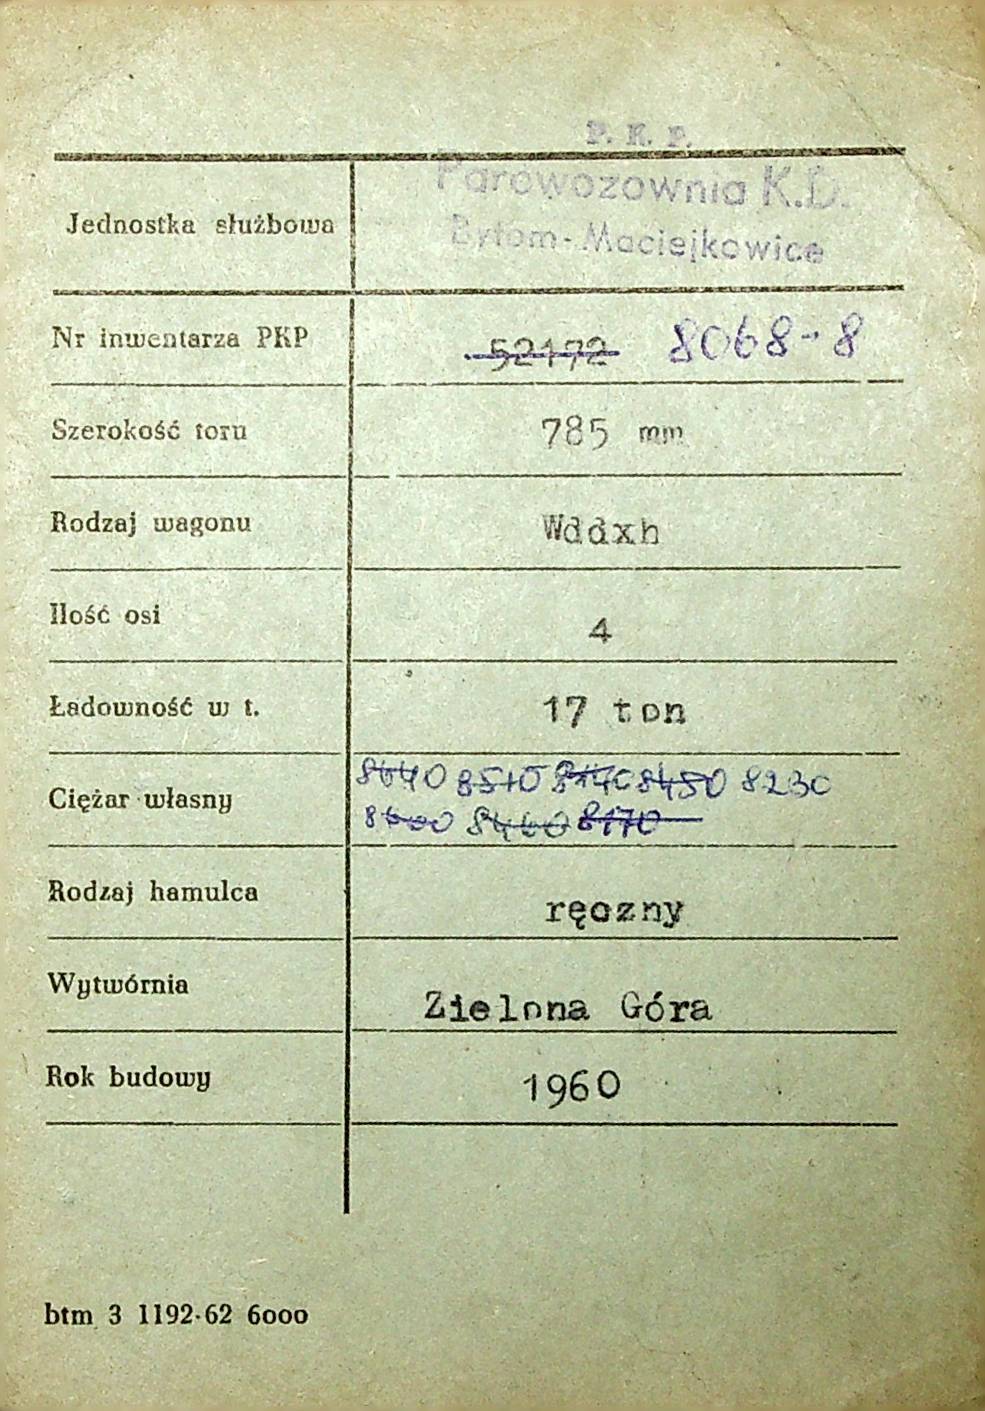 P. K. P.
Parowozownia K.D.
Jednostka służbowa
Bytom-Maciejkowice
Nr inwentarza PKP 52172 8068-8
Szerokość toru 785 mm
Rodzaj wagonu Wddxh
Ilość osi 4
Ładowność w t. 17 ton
8640 8510 8450 8230
Ciężar własny
8600 8460 8170
Rodzaj hamulca ręczny
Wytwórnia Zielona Góra
Rok budowy 1960
btm 3 1192-62 6000